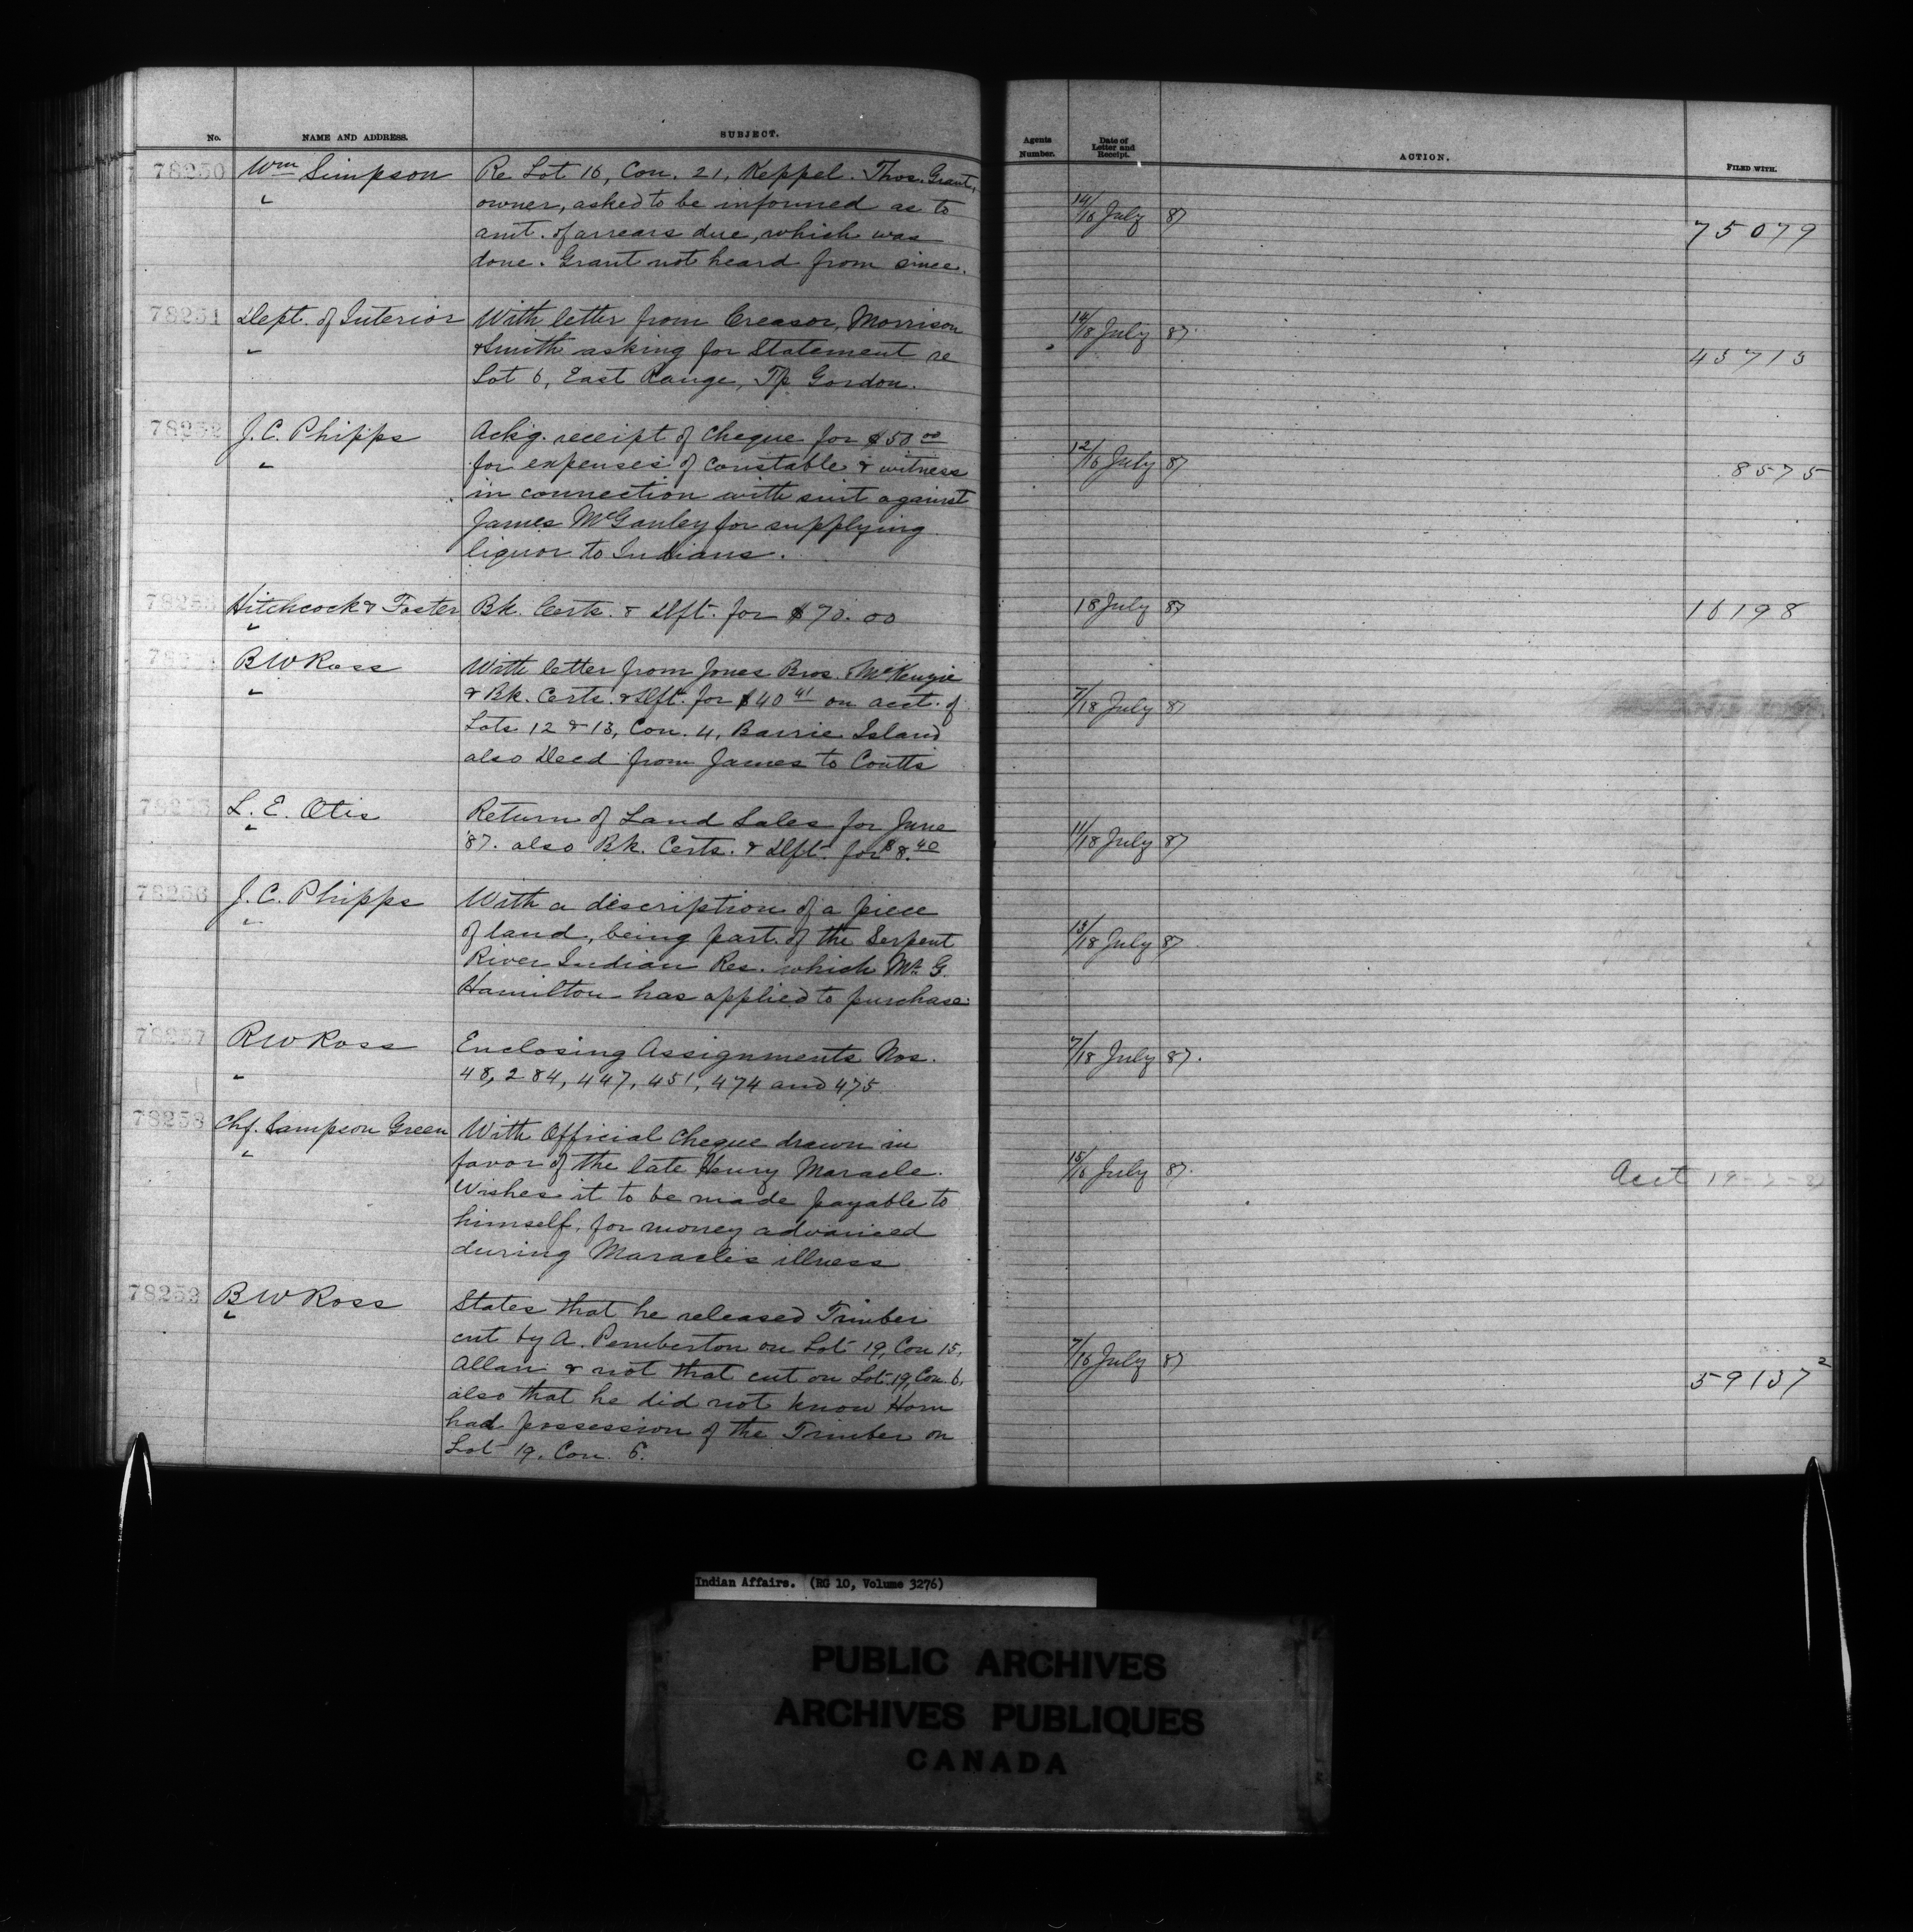 No. NAME AND ADDRESS. SUBJECT. Agents Number. Date of Letter and Receipt. ACTION. FILED WITH.
78250 Wm Simpson Re Lot 16, Con. 21, Keppel. Thos. Grant, 14/18 July 87 75079
" owner, asked to be informed as to
amt. of arrears due, which was
done. Grant not heard from since.
78251 Dept. of Interior With letter from Creasor, Morrison 14/18 July 87.
" & Smith asking for Statement re 45713
Lot 6, East Range, Tp Gordon.
78252 J. C. Phipps Ackg. receipt of cheque for $50 00 12/16 July 87 8575
" for expenses of constable & witness
in connection with suit against
James McGauley for supplying
liquor to Indians.
78253 Hitchcock & Foster Bk. Certs. & Dft. for $70.00 18 July 87 16198
"
B W Ross With letter from Jones Bros. & McKenzie 7/18 July 87
" & Bk. Certs. & Dft. for $40 41 on acct. of
Lots 12 & 13, Con. 4, Barrie Island
also Deed from James to Coutts
78255 L. E. Otis Return of Land Sales for June 11/18 July 87
" '87. also Bk. Certs. & Dft. for $8.40
78256 J. C. Phipps With a description of a piece 13/18 July 87
" of land, being part of the Serpent
River Indian Res. which Mr. G.
Hamilton has applied to purchase.
78257 B W Ross Enclosing Assignments Nos. 7/18 July 87.
" 48, 284, 447, 451, 474 and 475
78258 Chf. Sampson Green With Official Cheque drawn in 15/16 July 87. Acct
" favor of the late Henry Maracle.
Wishes it to be made payable to
himself, for money advanced
during Maracle's illness
78259 B W Ross States that he released Timber 7/16 July 87 59137 2
" cut by A. Pemberton on Lot 19, Con 15,
Allan & not that cut on Lot 19, Con. 6,
also that he did not know Horn
had possession of the Timber on
Lot 19. Con. 6.
Indian Affairs. (RG 10, Volume 3276)
PUBLIC ARCHIVES
ARCHIVES PUBLIQUES
CANADA